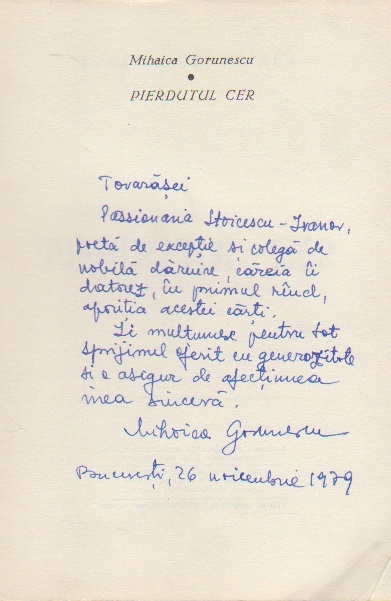 Mihaica Gorunescu
●
PIERDUTUL CER
Tovarășei
Passionaria Stoicescu-Ivanov,
poetă de excepție și colegă de
nobilă dăruire, căreia îi
datorez, în primul rînd,
apariția acestei cărți.
Îi mulțumesc pentru tot
sprijinul oferit cu generozitate
și o asigur de afecțiunea
mea sinceră.
Mihaica Gorunescu
București, 26 noiembrie 1979